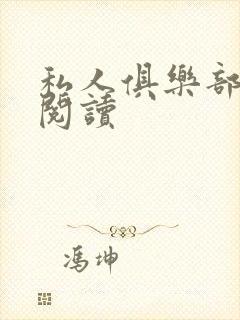 私人俱樂部
閱讀
馮坤